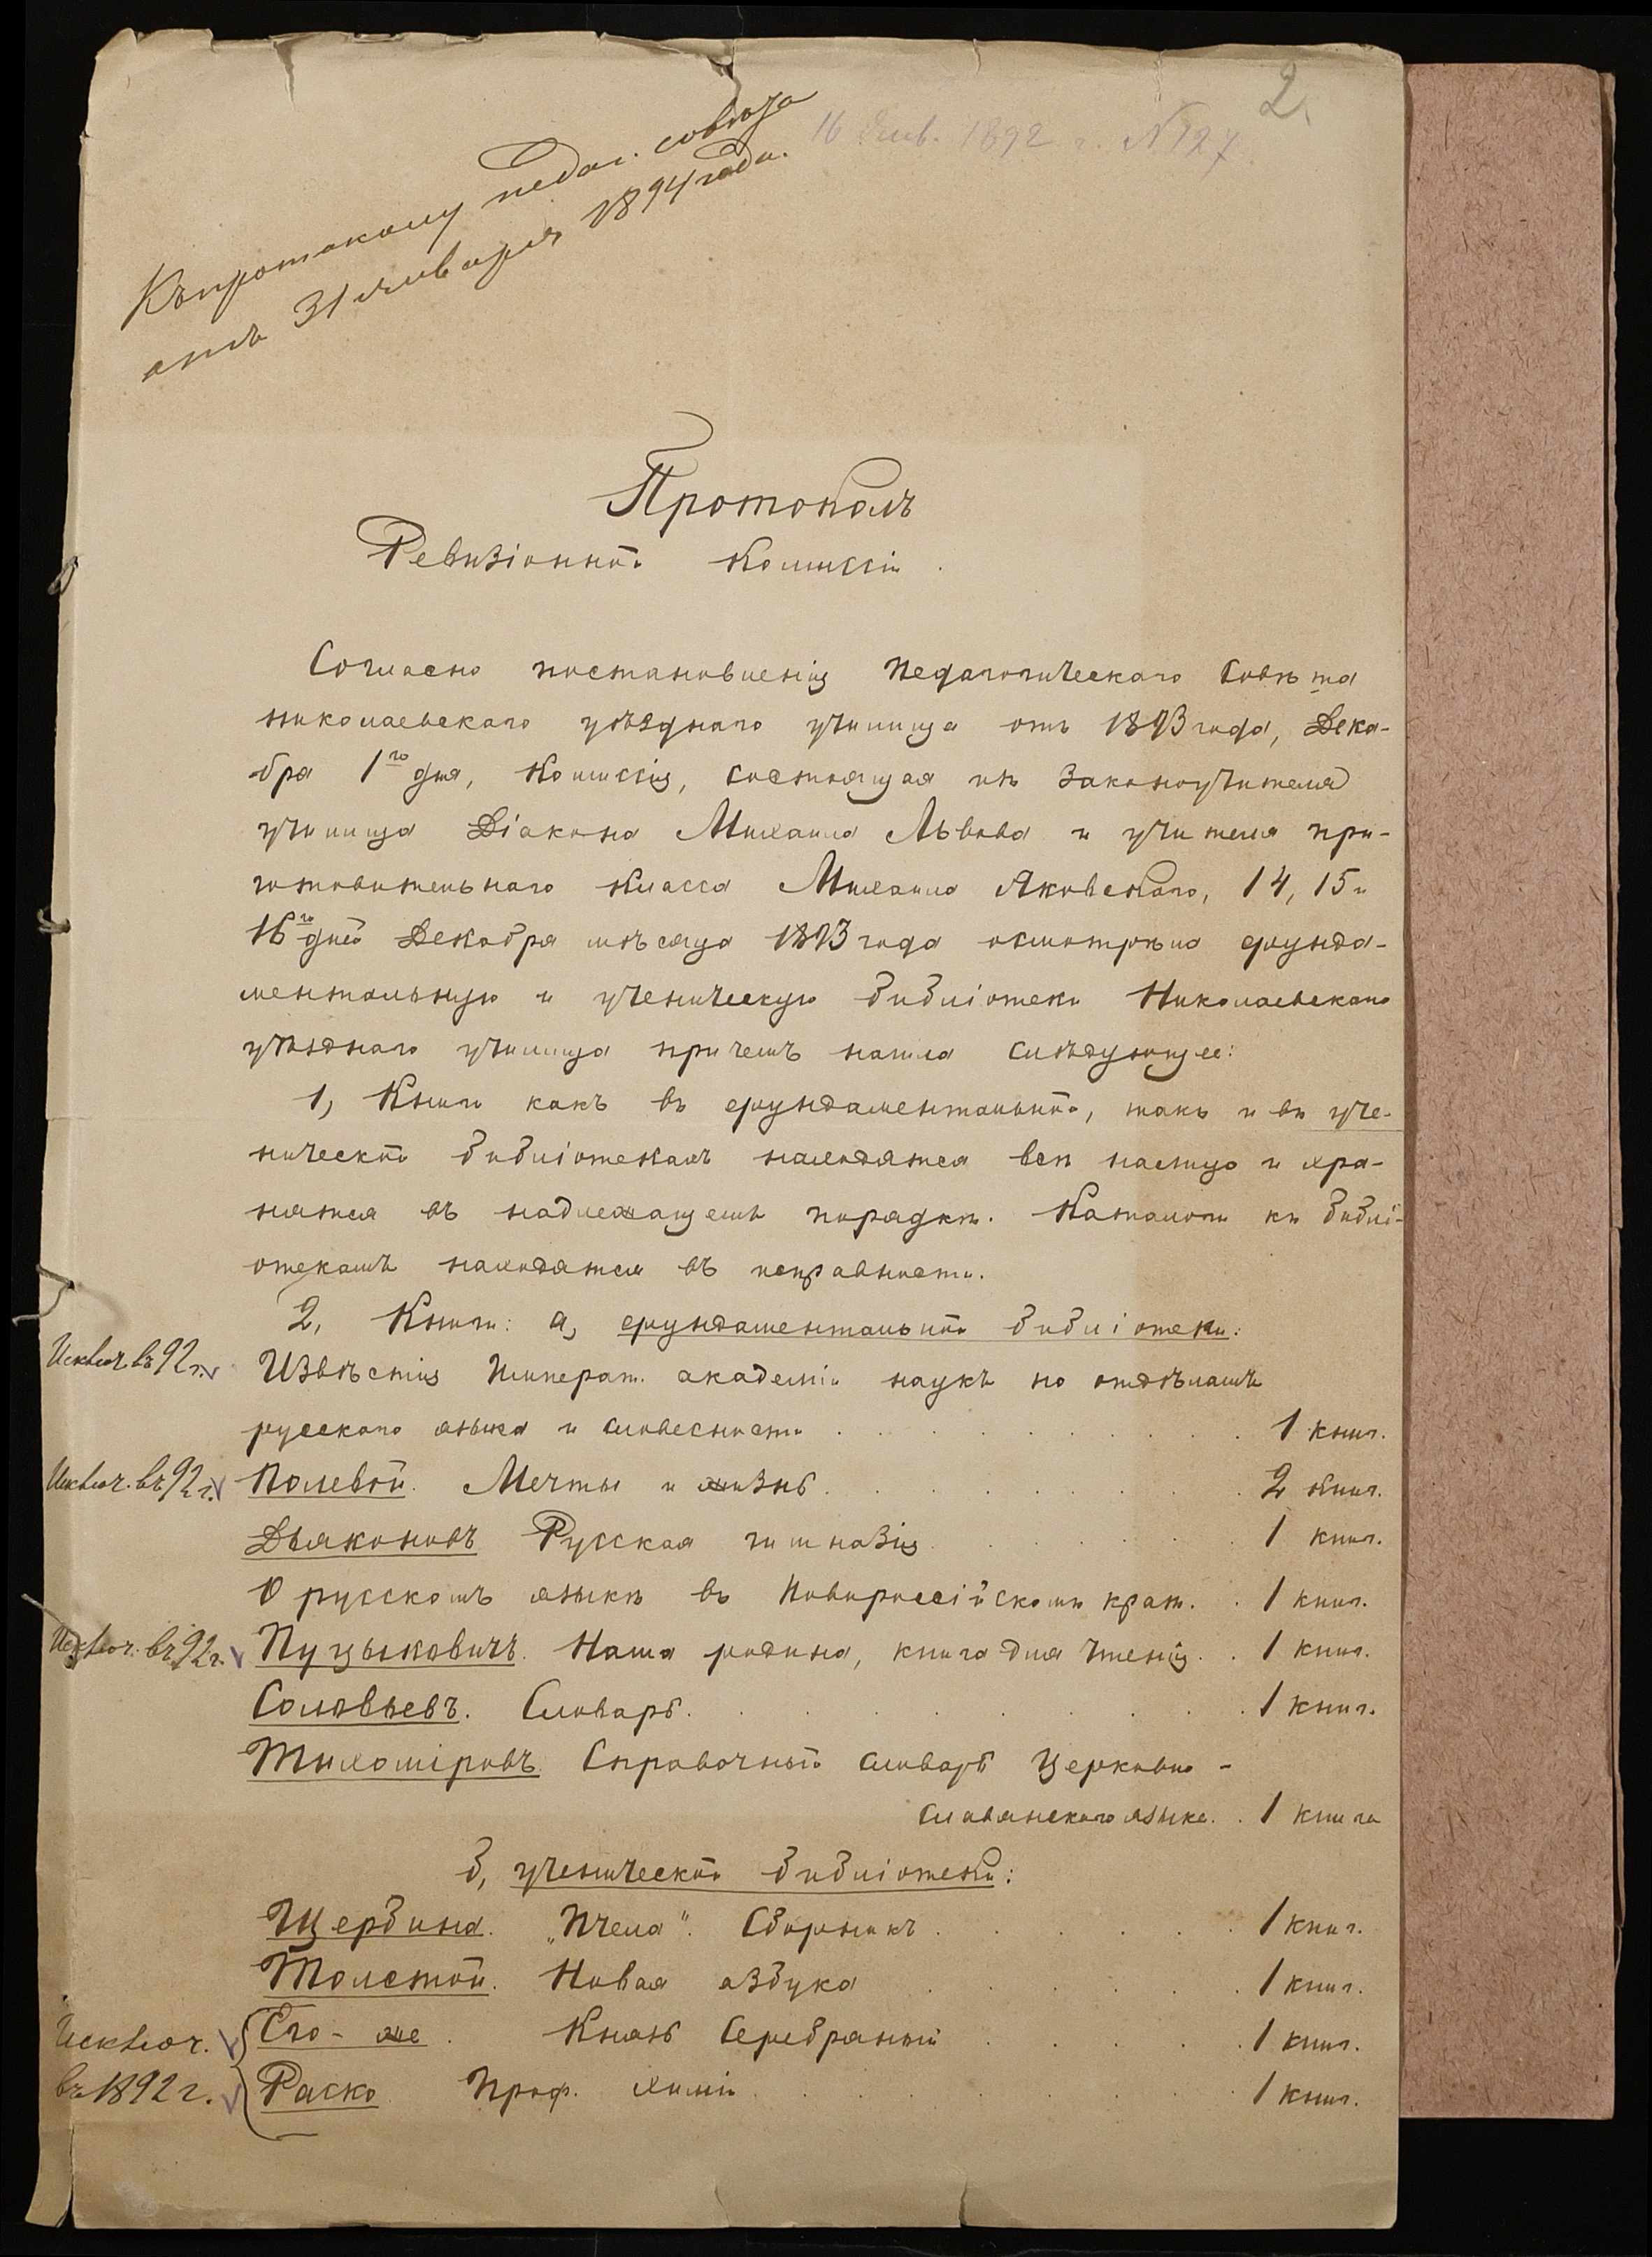 2
16 Янв. 1892 г. № 127
Къ протоколу педаг. совѣта
отъ 31 января 1894 года.
Протоколъ
Ревизіонной Коммиссіи.
Согласно постановленія Педагогическаго Совѣта
Николаевскаго уѣзднаго училища отъ 1893 года, Дека-
бря 1го дня, Коммиссія, состоящая изъ Законоучителя
училища Діакона Михаила Львова и учителя при-
готовительнаго класса Михаила Яковскаго, 14, 15 и
16го дней Декабря мѣсяца 1893 года осмотрѣла фунда-
ментальную и ученическую библіотеки Николаевскаго
уѣзднаго училища причемъ нашла слѣдующее:
1, Книги какъ въ фундаментальной, такъ и въ уче-
нической библіотекахъ находятся всѣ налицо и хра-
нятся въ надлежащемъ порядкѣ. Каталоги къ библі-
отекамъ находятся въ исправности.
2, Книги: а, фундаментальной библіотеки:
Исключ. въ 92 г. Извѣстія Императ. академіи наукъ по отдѣламъ
русскаго языка и словесности . . . 1 книг.
Исключ. въ 92 г. Полевой. Мечты и жизнь. . . . 2 книг.
Дьяконовъ Русская гимназія . . . 1 книг.
О русскомъ языкѣ въ Новороссійскомъ краѣ. . 1 книг.
Исключ. въ 92 г. Пуцыковичъ. Наша родина, книга для чтенія. . 1 книг.
Соловьевъ. Словарь. . . . 1 книг.
Тихоміровъ. Справочный словарь Церковно-
славянскаго языка. . 1 книга
б, ученической библіотеки:
Щербина. „Пчела“. Сборникъ . . . 1 книг.
Толстой. Новая азбука . . . 1 книг.
Исключ. Его-же. Князь Серебряный . . . 1 книг.
въ 1892 г. Раско Проф. химіи . . . 1 книг.